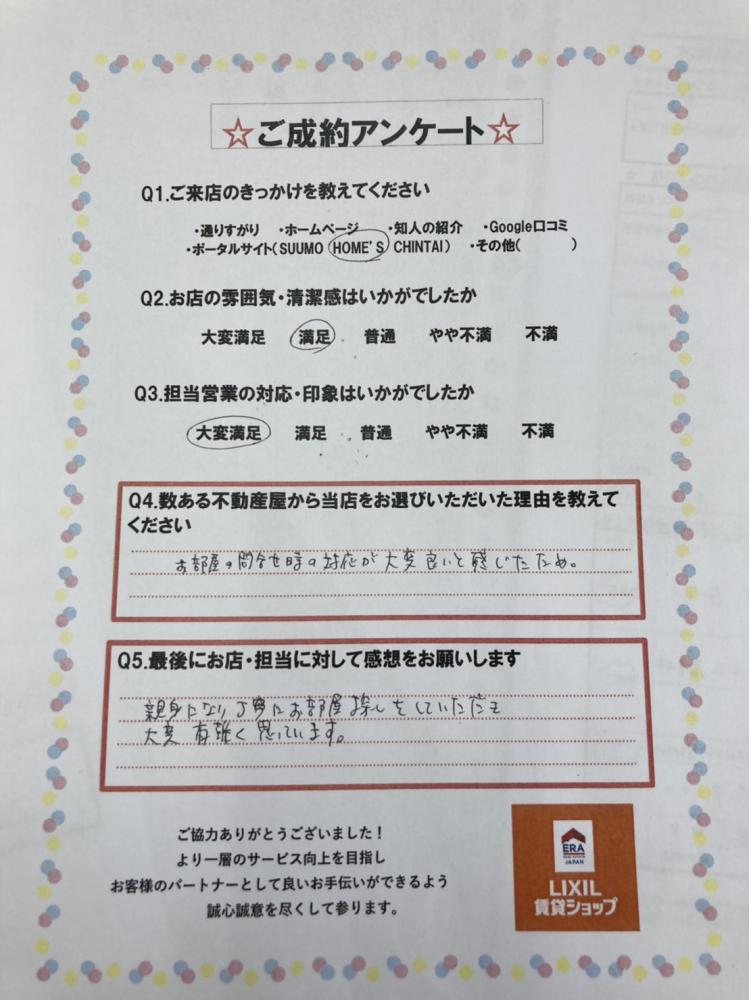 ☆ご成約アンケート☆
Q1.ご来店のきっかけを教えてください
・通りすがり ・ホームページ ・知人の紹介 ・Google口コミ
・ポータルサイト(SUUMO HOME'S CHINTAI) ・その他( )
Q2.お店の雰囲気・清潔感はいかがでしたか
大変満足 満足 普通 やや不満 不満
Q3.担当営業の対応・印象はいかがでしたか
大変満足 満足 普通 やや不満 不満
Q4.数ある不動産屋から当店をお選びいただいた理由を教えて
ください
お部屋の問合せ時の対応が大変良いと感じたため。
Q5.最後にお店・担当に対して感想をお願いします
親身になり丁寧にお部屋探しをしていただき
大変有難く思っています。
ご協力ありがとうございました！
より一層のサービス向上を目指し
お客様のパートナーとして良いお手伝いができるよう
誠心誠意を尽くして参ります。
ERA
JAPAN
LIXIL
賃貸ショップ